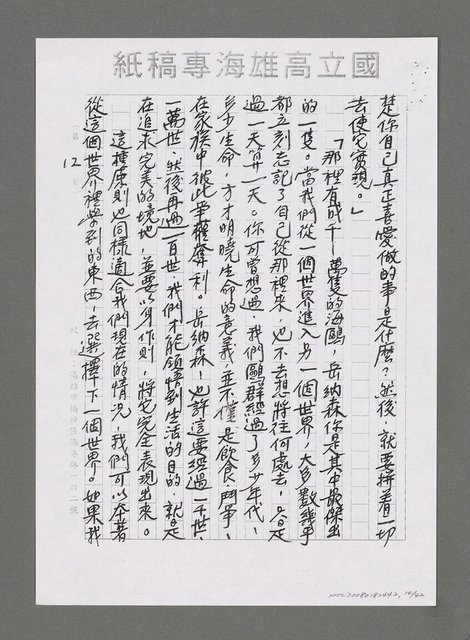 國立高雄海專稿紙
楚你自己真正喜愛做的事是什麼？然後，就要拼着一切
去使它實現。」
「那裡有成千一萬隻的海鷗，岳納森你是其中最傑出
的一隻。當我們從一個世界進入另一個世界，大多數幾乎
都立刻忘記了自己從那裡來，也不去想將往何處去，只是
過一天算一天。你可曾想過，我們鷗群經過了多少年代、
多少生命，方才明曉生命的意義，並不僅是飲食、鬥爭、
在家族中彼此爭權奪利。岳納森，也許這要經過一千世、
一萬世，然後再過一百世，我們才能領悟到生活的目的，就是
在追求完美的境地，並要以身作則，將它完全表現出來。
這種原則也同樣適合我們現在的情況，我們可以本著
從這個世界裡學到的東西，去選擇下一個世界。如果我
第12頁
NMTL20080182442, 14/62